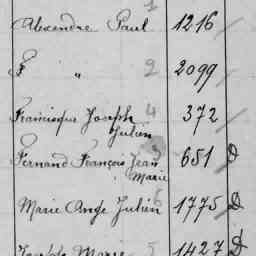 1
Alexandre Paul 1216
F " 2 2099
Francisque Joseph 4 372
Julien
Fernand François Jean 3 651 D
Marie
Marie Ange Julien 6 1775 D
Joseph Marie 5 1427 D